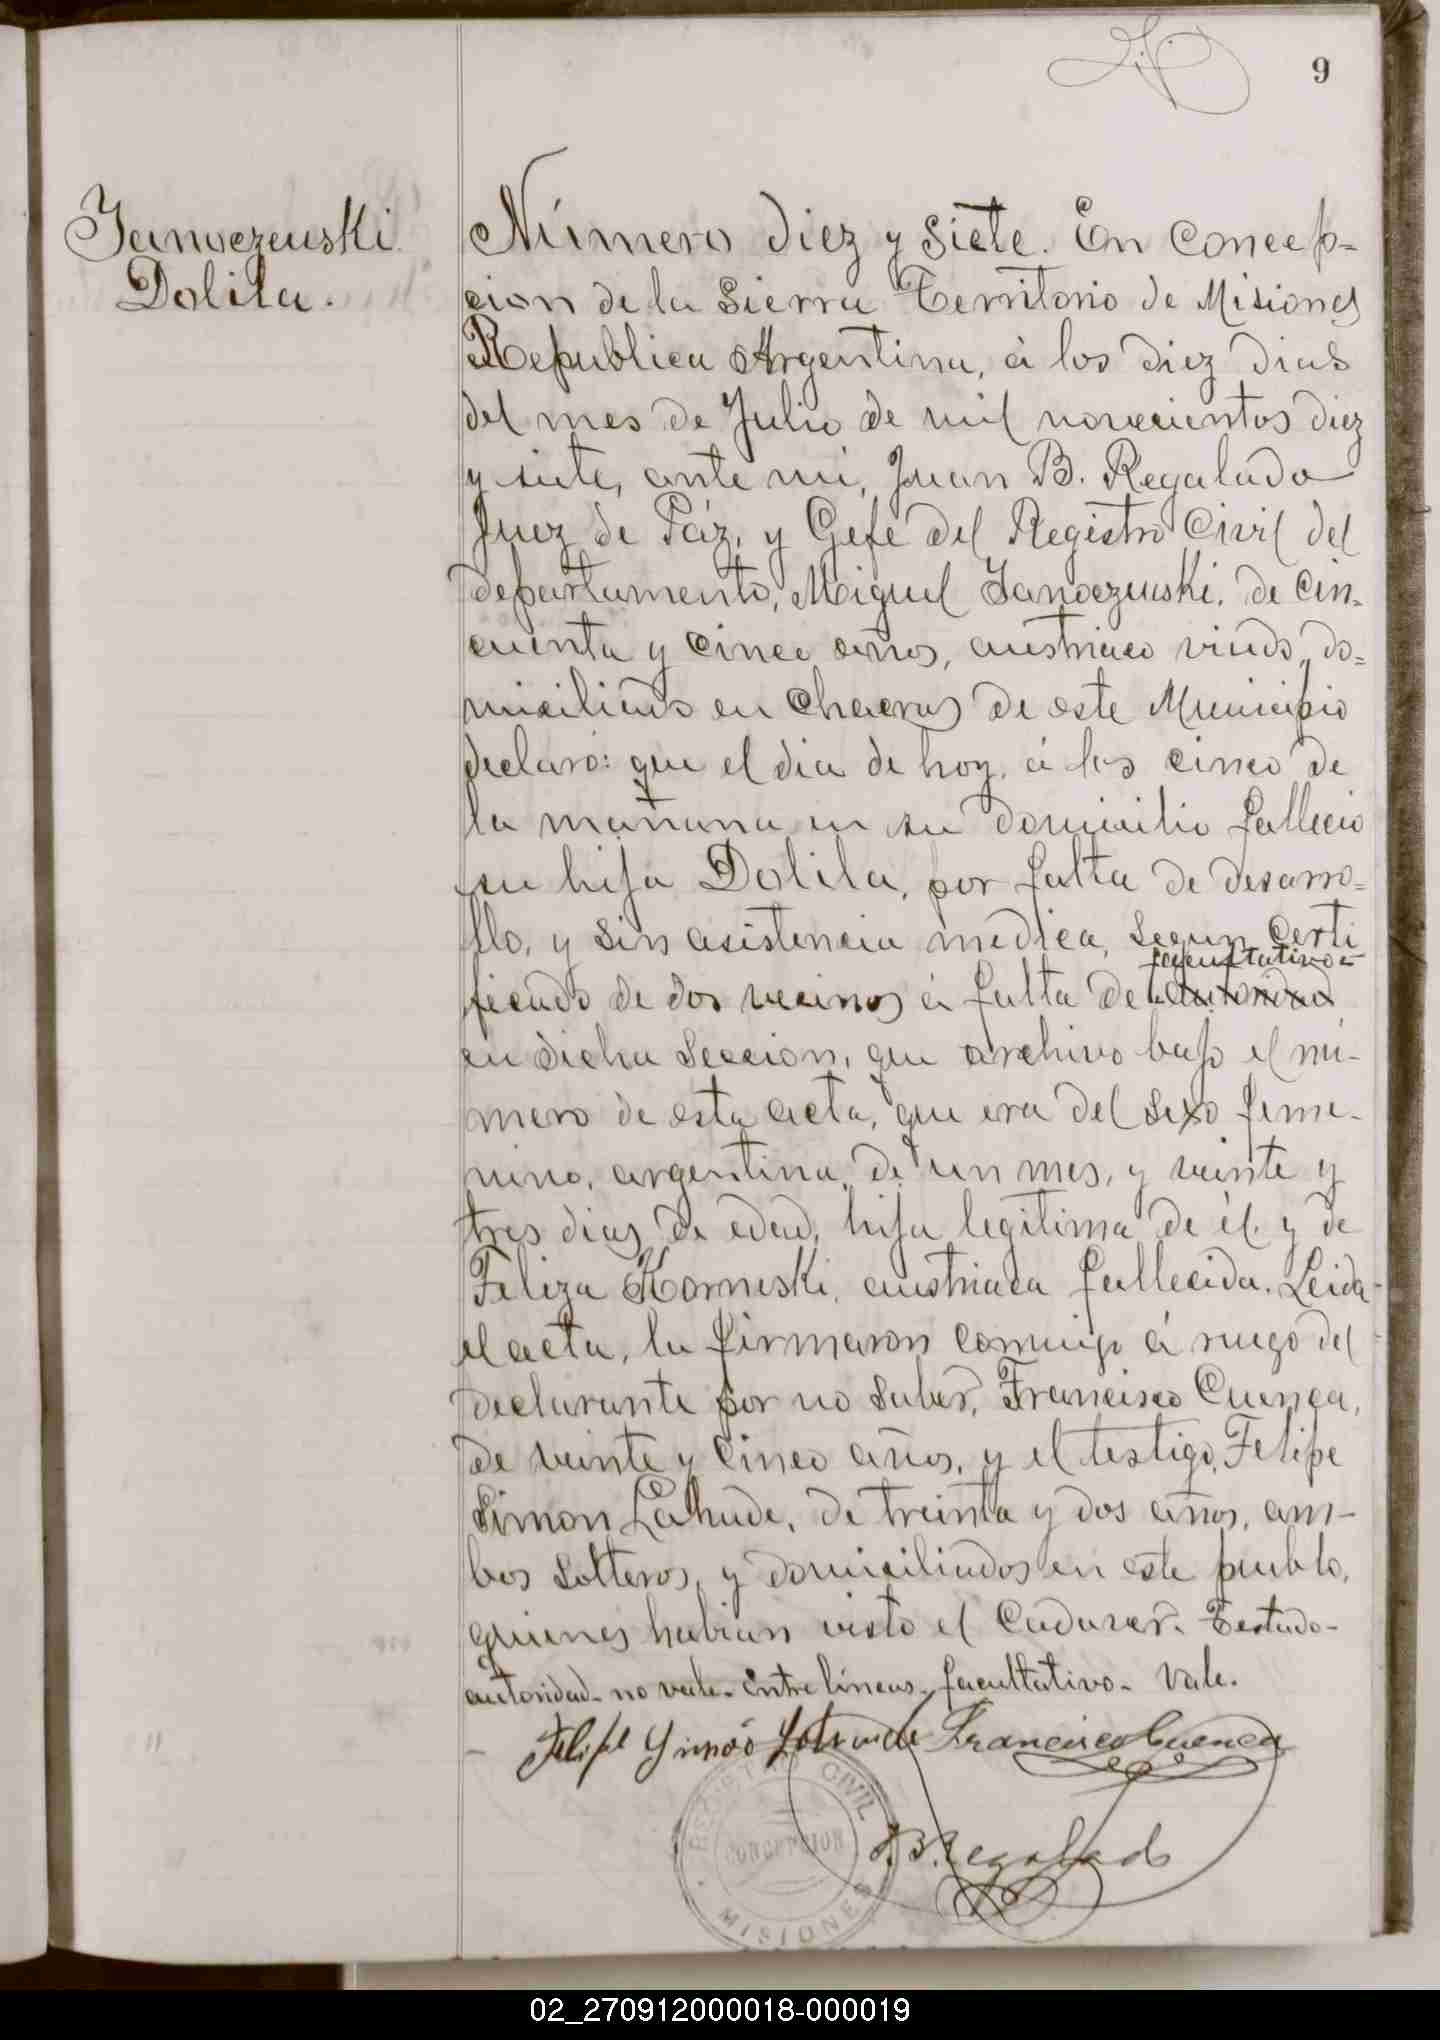 9
Janoczeuski
Dolila.
Número diez y siete. En Concep-
cion de la Sierra Territorio de Misiones
Republica Argentina, á los diez dias
del mes de Julio de mil novecientos diez
y siete, ante mi, Juan B. Regalado
Juez de Páz, y Gefe del Registro Civil del
departamento, Miguel Janoczeuski, de cin-
cuenta y cinco años, austriaco viudo, do=
miciliado en Chacras de este Municipio
declaró: que el dia de hoy, á las cinco de
la mañana en su domicilio fallecio
su hija Dolila, por falta de desarro=
llo, y sin asistencia medica, segun certi
facultativo-
ficado de dos vecinos á falta de autoridad
en dicha Seccion, que archivo bajo el nú-
mero de esta acta, que era del sexo feme-
nino, argentina, de un mes, y veinte y
tres dias de edad, hija legitima de él y de
Feliza Korneski, austriaca fallecida. Leida
el acta, la firmaron conmigo á ruego del
declarante por no saber, Francisco Cuenca,
de veinte y cinco años, y el testigo, Felipe
Simon Lahude, de treinta y dos años, am-
bos solteros, y domiciliados en este pueblo,
quienes habian visto el cadaver. Testado-
autoridad- no vale- Entre líneas- facultativo- Vale.
Felipe Simão Francisco Cuenca
J. B. Regalado
REGISTRO CIVIL
CONCEPCION
MISIONES
02_270912000018-000019